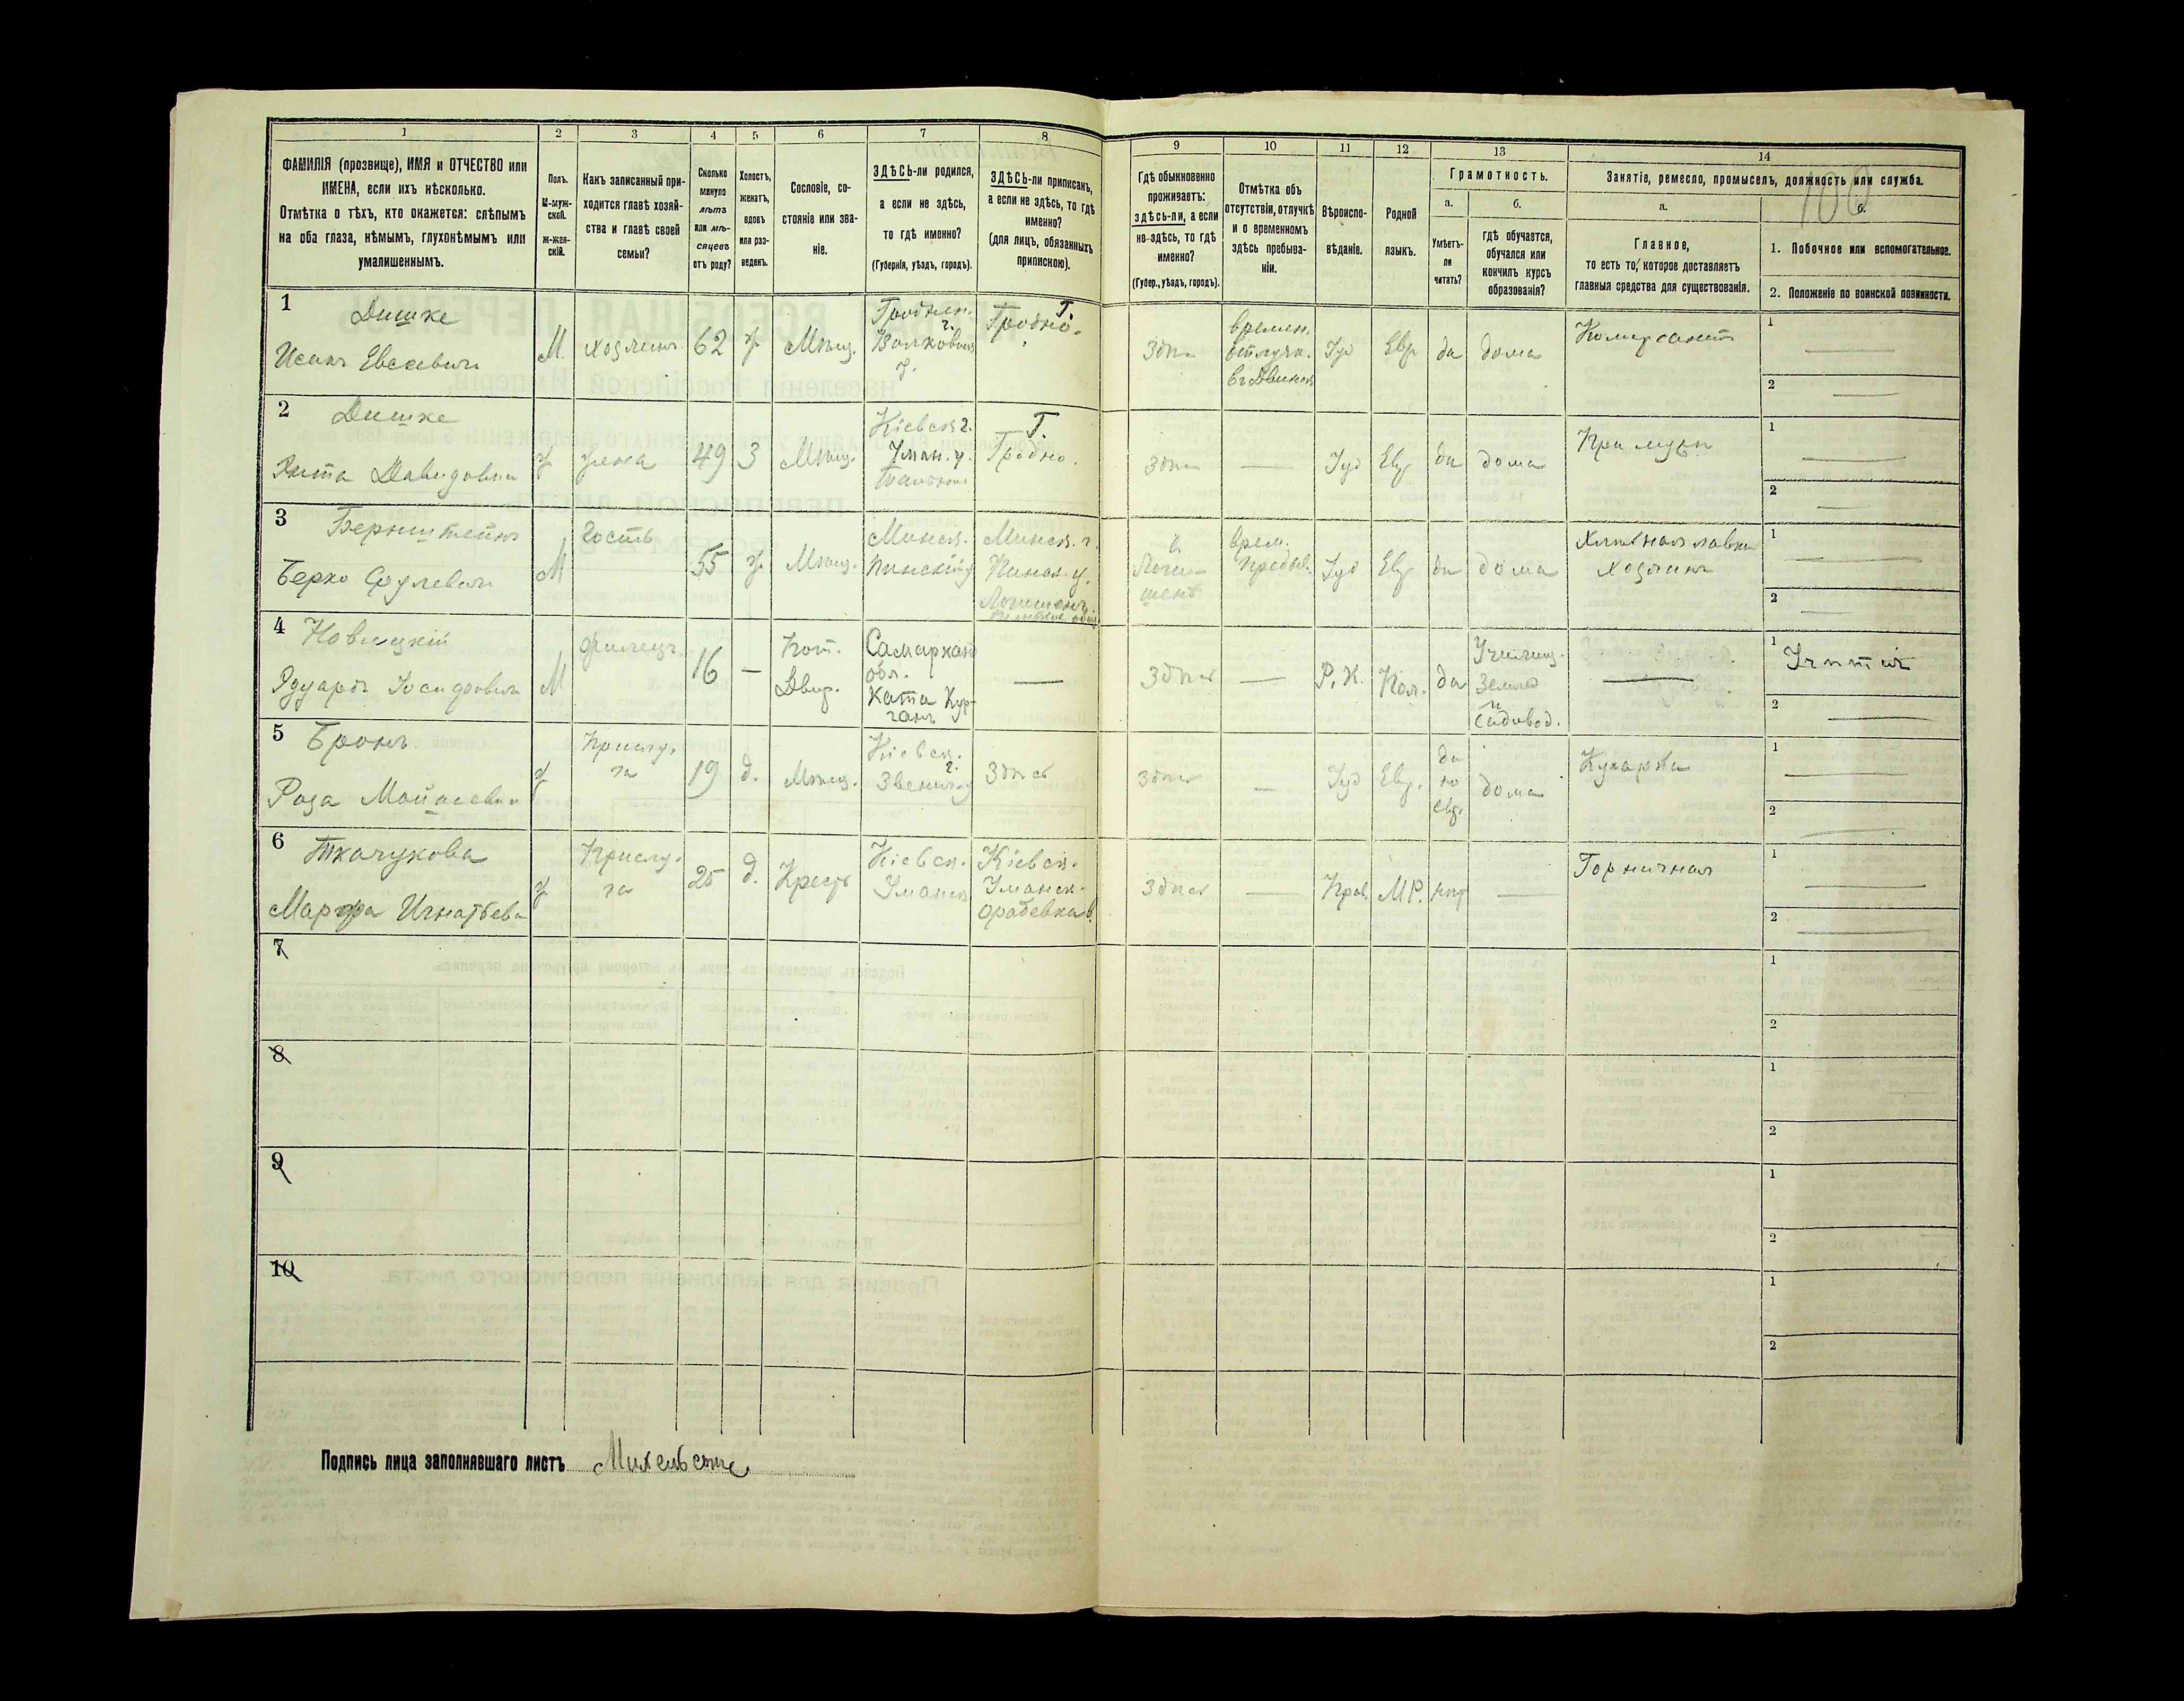 1 2 3 4 5 6 7 8 9 10 11 12 13 14
ФАМИЛІЯ (прозвище), ИМЯ и ОТЧЕСТВО или
ИМЕНА, если ихъ нѣсколько.
Отмѣтка о тѣхъ, кто окажется: слѣпымъ
на оба глаза, нѣмымъ, глухонѣмымъ или
умалишеннымъ.
Полъ.
М-муж-
ской.
ж-жен-
скій.
Какъ записанный при-
ходится главѣ хозяй-
ства и главѣ своей
семьи?
Сколько
минуло
лѣтъ
или мѣ-
сяцевъ
отъ роду?
Холостъ,
женатъ,
вдовъ
или раз-
веденъ.
Сословіе, со-
стояніе или зва-
ніе.
ЗДѢСЬ-ли родился,
а если не здѣсь,
то гдѣ именно?
(Губернія, уѣздъ, городъ).
ЗДѢСЬ-ли приписанъ,
а если не здѣсь, то гдѣ
именно?
(для лицъ, обязанныхъ
припискою).
Гдѣ обыкновенно
проживаетъ:
здѣсь-ли, а если
не здѣсь, то гдѣ
именно?
(Губер., уѣздъ, городъ).
Отмѣтка объ
отсутствіи, отлучкѣ
и о временномъ
здѣсь пребыва-
ніи.
Вѣроиспо-
вѣданіе.
Родной
языкъ.
Грамотность.
а. б.
Умѣетъ-
ли
читать?
гдѣ обучается,
обучался или
кончилъ курсъ
образованія?
Занятіе, ремесло, промыселъ, должность или служба.
100
а. б.
Главное,
то есть то, которое доставляетъ
главныя средства для существованія.
1. Побочное или вспомогательное.
2. Положеніе по воинской повинности.
1
Дишке
Исакъ Евсеевичъ
М.
хозяинъ
62
ж
Мѣщ.
Гроднен.
г.
Волковыск
у.
Г.
Гродно.
здѣ
времен.
отлучк.
въ Двинск
Іуд
Евр
да
дома
Комерсантъ
1
2
2
Дишке
Давидовна
ж
жена
49
З
Мѣщ.
Кіевск г.
Уман. у.
Г.
Гродно.
здѣ
Іуд
Евр
да
дома
При мужѣ
1
2
3
Бернштейнъ
Берко
М
гость
55
ж
Мѣщ.
Минск.
Пинскій у
Минск. г.
Пинск. у.
врем.
Іуд
Евр
да
дома
лавка
хозяинъ
1
2
4
Новицкій
Эдуардъ Іосифовичъ
М
16
Пот.
Двор.
Самаркан
обл.
Ката Кур-
ганъ
Здѣс
Р. К.
Пол.
да
Училищ.
Землед
и
Садовод.
1
2
5
Бронъ
Роза
ж
Прислу.
га
19
д.
Мѣщ.
Кіевск.
г.
Звениг у
Здѣсь
Здѣс
Іуд
Евр.
да
по
евр.
дома
Кухарка
1
2
6
Ткачукова
Марфа Игнатьева
ж
Прислу.
га
25
д.
Крест
Кіевск.
Уманск
Кіевск.
Уманск.
Здѣс
Прав.
МР.
нѣт
Горничная
1
2
7
1
2
8
1
2
9
1
2
10
1
2
Подпись лица заполнявшаго листъ